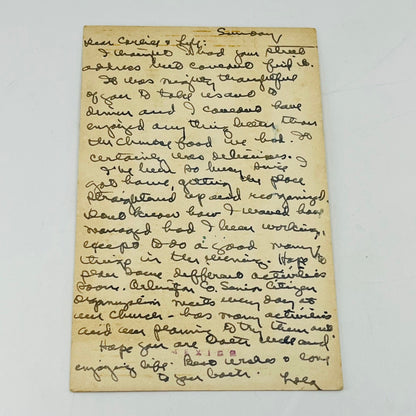 Sunday
Dear Carlie & Jeff:
I thought I had your street
address but couldn't find it.
It was mighty thoughtful
of you to take us out to
dinner and I couldn't have
enjoyed anything better than
the Chinese food we had. It
certainly was delicious. I
I've been so busy since I
got home, getting the place
straightened up and reorganized.
Don't know how I would have
managed had I been working,
except to do a good many
things in the evening. Hope to
plan some different activities
soon. Arlington Co. Senior Citizen
organization meets every day at
our church - has many activities
and am planning to try them out
Hope you are both well and
enjoying life. Best wishes & love
to you both. Lola
MEXICO